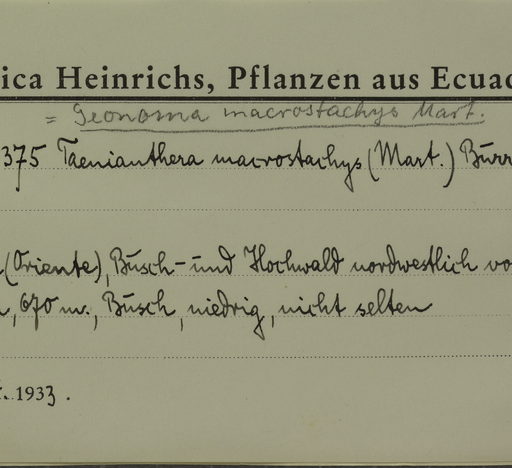 ica Heinrichs, Pflanzen aus Ecuad
= Geonoma macrostachys Mart.
375 Taenianthera macrostachys (Mart.) Burr
(Oriente), Busch- und Hochwald nordwestlich vo
, 670 m., Busch, niedrig, nicht selten
. 1933.